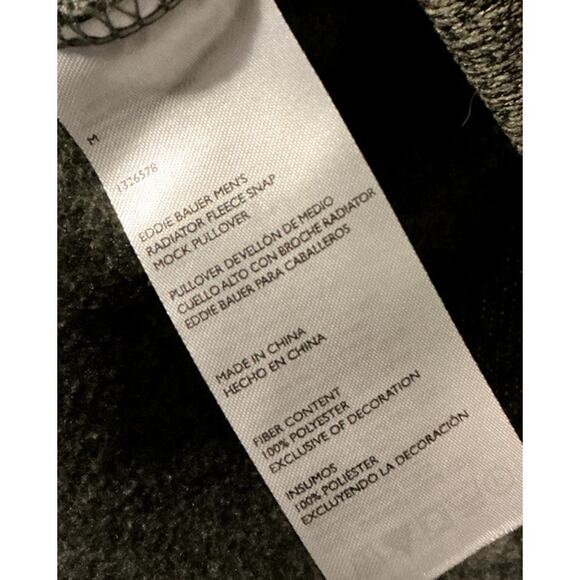 M
1326578
EDDIE BAUER MEN'S
RADIATOR FLEECE SNAP
MOCK PULLOVER
PULLOVER DEVELLÓN DE MEDIO
CUELLO ALTO CON BROCHE RADIATOR
EDDIE BAUER PARA CABALLEROS
MADE IN CHINA
HECHO EN CHINA
FIBER CONTENT
100% POLYESTER
EXCLUSIVE OF DECORATION
INSUMOS
100% POLIÉSTER
EXCLUYENDO LA DECORACIÓN